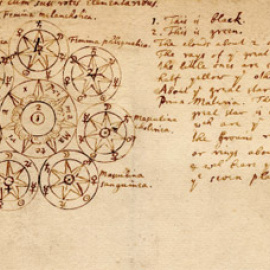 cum suis rotis
Fœmina melancholica.
Fœmina phlegmatica.
Masculina
cholerica.
Masculina
sanguinea.
1. This is black.
2. This is green.
The clouds about 2
The rays of ye great
the little ones are
half yellow
About ye great star
Prima Materia. The
great star is
wch are ye
the ground
or rings about
earth are
ye seven